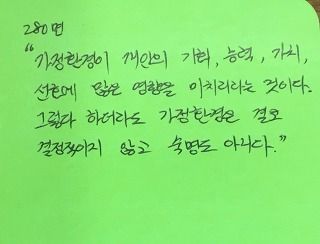 280면
"가정환경이 개인의 기회, 능력, 가치,
선호에 많은 영향을 미치리라는 것이다.
그렇다 하더라도 가정환경은 결코
결정적이지 않고 숙명도 아니다."